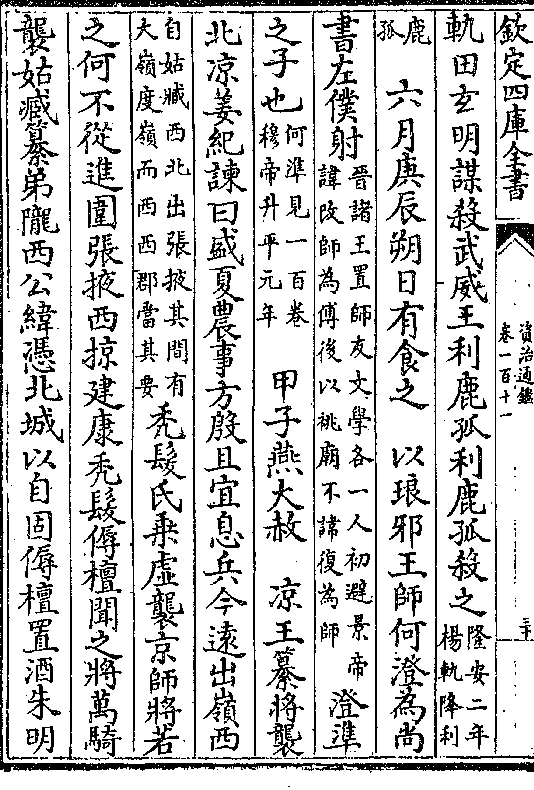 欽定四庫全書
資治通鑑
卷一百十一
三十
軌田玄明謀殺武威王利鹿孤利鹿孤殺之隆安二年楊軌降利
鹿孤 六月庚辰朔日有食之 以琅邪王師何澄為尚
書左僕射晉諸王置師友文學各一人初避景帝諱改師為傅後以祧廟不諱復為師澄準
之子也何準見一百卷穆帝升平元年 甲子燕大赦 凉王纂將襲
北凉姜紀諫曰盛夏農事方殷且宜息兵今遠出嶺西
自姑臧西北出張掖其間有大嶺度嶺而西西郡當其要禿髮氏乗虛襲京師將若
之何不從進圍張掖西掠建康禿髮傉檀聞之將萬騎
襲姑臧纂弟隴西公緯憑北城以自固傉檀置酒朱明